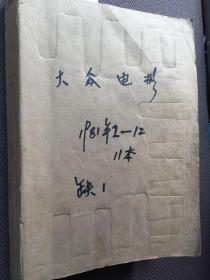 大众电影
1981年2—12
11本
缺1